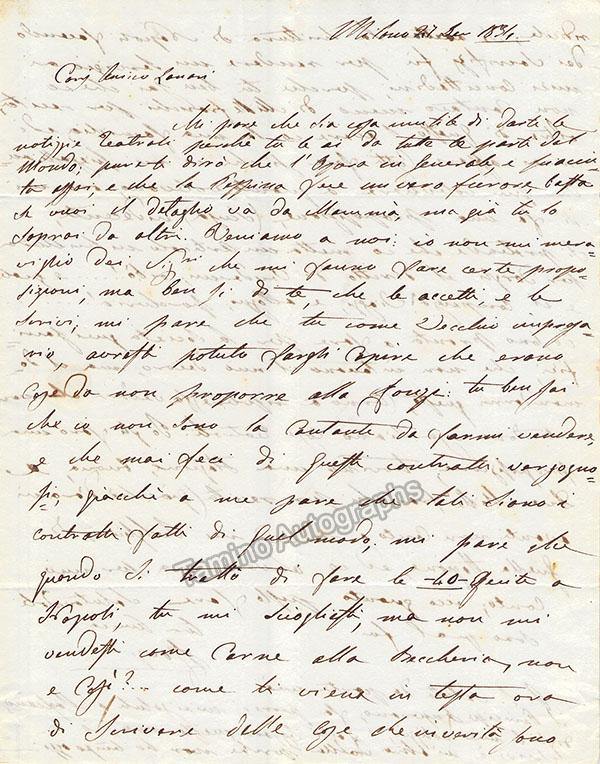 Milano 27 1834.
Caro Amico Lanari
Mi pare che sia cosa inutile di darti le
notizzie Teatrali perche tu le ai da tutte le parti del
Mondo; pure ti dirò che l'Opera in Generale, e piaciu-
ta assai, e che la Peppina fece un vero furore, basta
se vuoi il detaglio va da Mammà, ma già tu lo
saprai da altri. Veniamo a noi: io non mi mera-
viglio dei Sigri che mi fanno fare certe propo-
sizioni, ma ben si di te, che le accetti, e le
scrivi; mi pare che tu come Vecchio impresa-
rio, avresti potuto fargli capire che erano
cose da non proporre alla tu ben sai
che io non sono la Cantante da farmi vendere,
e che mai feci di questi contratti vergogno-
si, giacchè a me pare che tali siano i
contratti fatti di quel modo; mi pare che
quando si trattò di fare le 40 Recite a
Napoli, tu mi sciogliesti, ma non mi
vendesti come Carne alla Beccheria, non
e così?... come ti viene in testa ora
di scrivere delle cose che in verità sono
Tamino Autographs